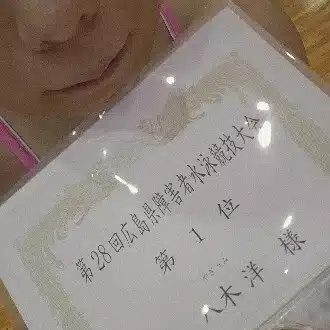 第28回広島県障害者水泳競技大会
第 1 位
八木 洋 様